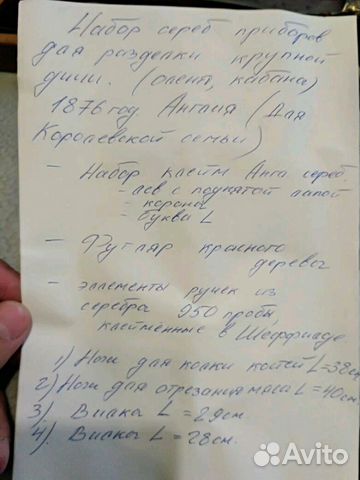 Набор сереб приборов
для разделки крупной
дичи. (оленя, кабана)
1876 год Англия (для
Королевской семьи)
- Набор клейм Анг. сереб.
- лев с поднятой лапой
- корона
- буква L
- Футляр красного
дерева
- эллементы ручек из
серебра 950 пробы,
клеймённые в Шеффилде
1) Нож для колки костей L=38см
2) Нож для отрезания мяса L=40см
3) Вилка L = 29см.
4) Вилка L = 28см.
Avito